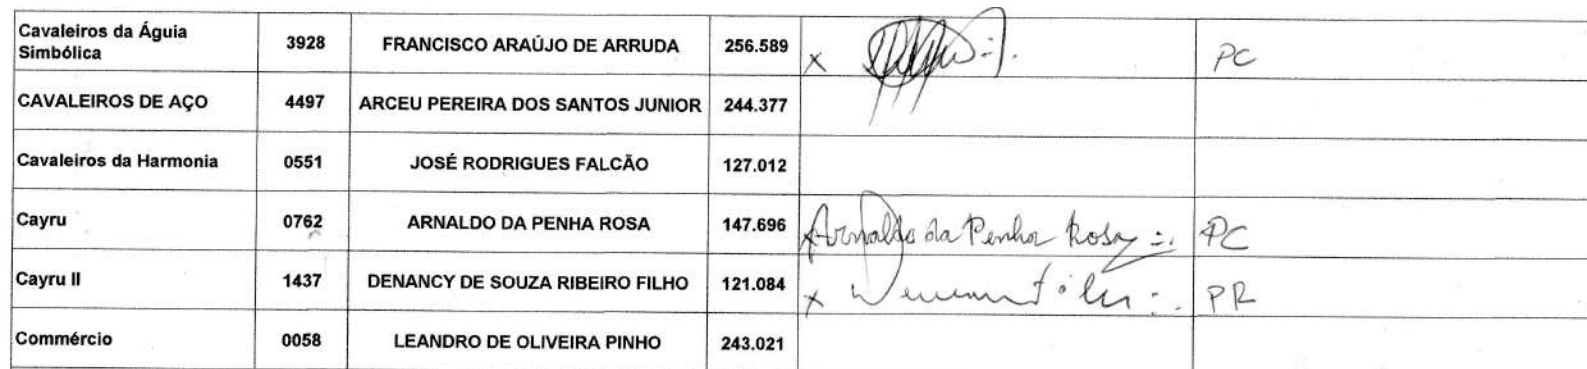 Cavaleiros da Águia Simbólica 3928 FRANCISCO ARAÚJO DE ARRUDA 256.589 x PC
CAVALEIROS DE AÇO 4497 ARCEU PEREIRA DOS SANTOS JUNIOR 244.377
Cavaleiros da Harmonia 0551 JOSÉ RODRIGUES FALCÃO 127.012
Cayru 0762 ARNALDO DA PENHA ROSA 147.696 Arnaldo da Penha Rosa PC
Cayru II 1437 DENANCY DE SOUZA RIBEIRO FILHO 121.084 x PR
Commércio 0058 LEANDRO DE OLIVEIRA PINHO 243.021